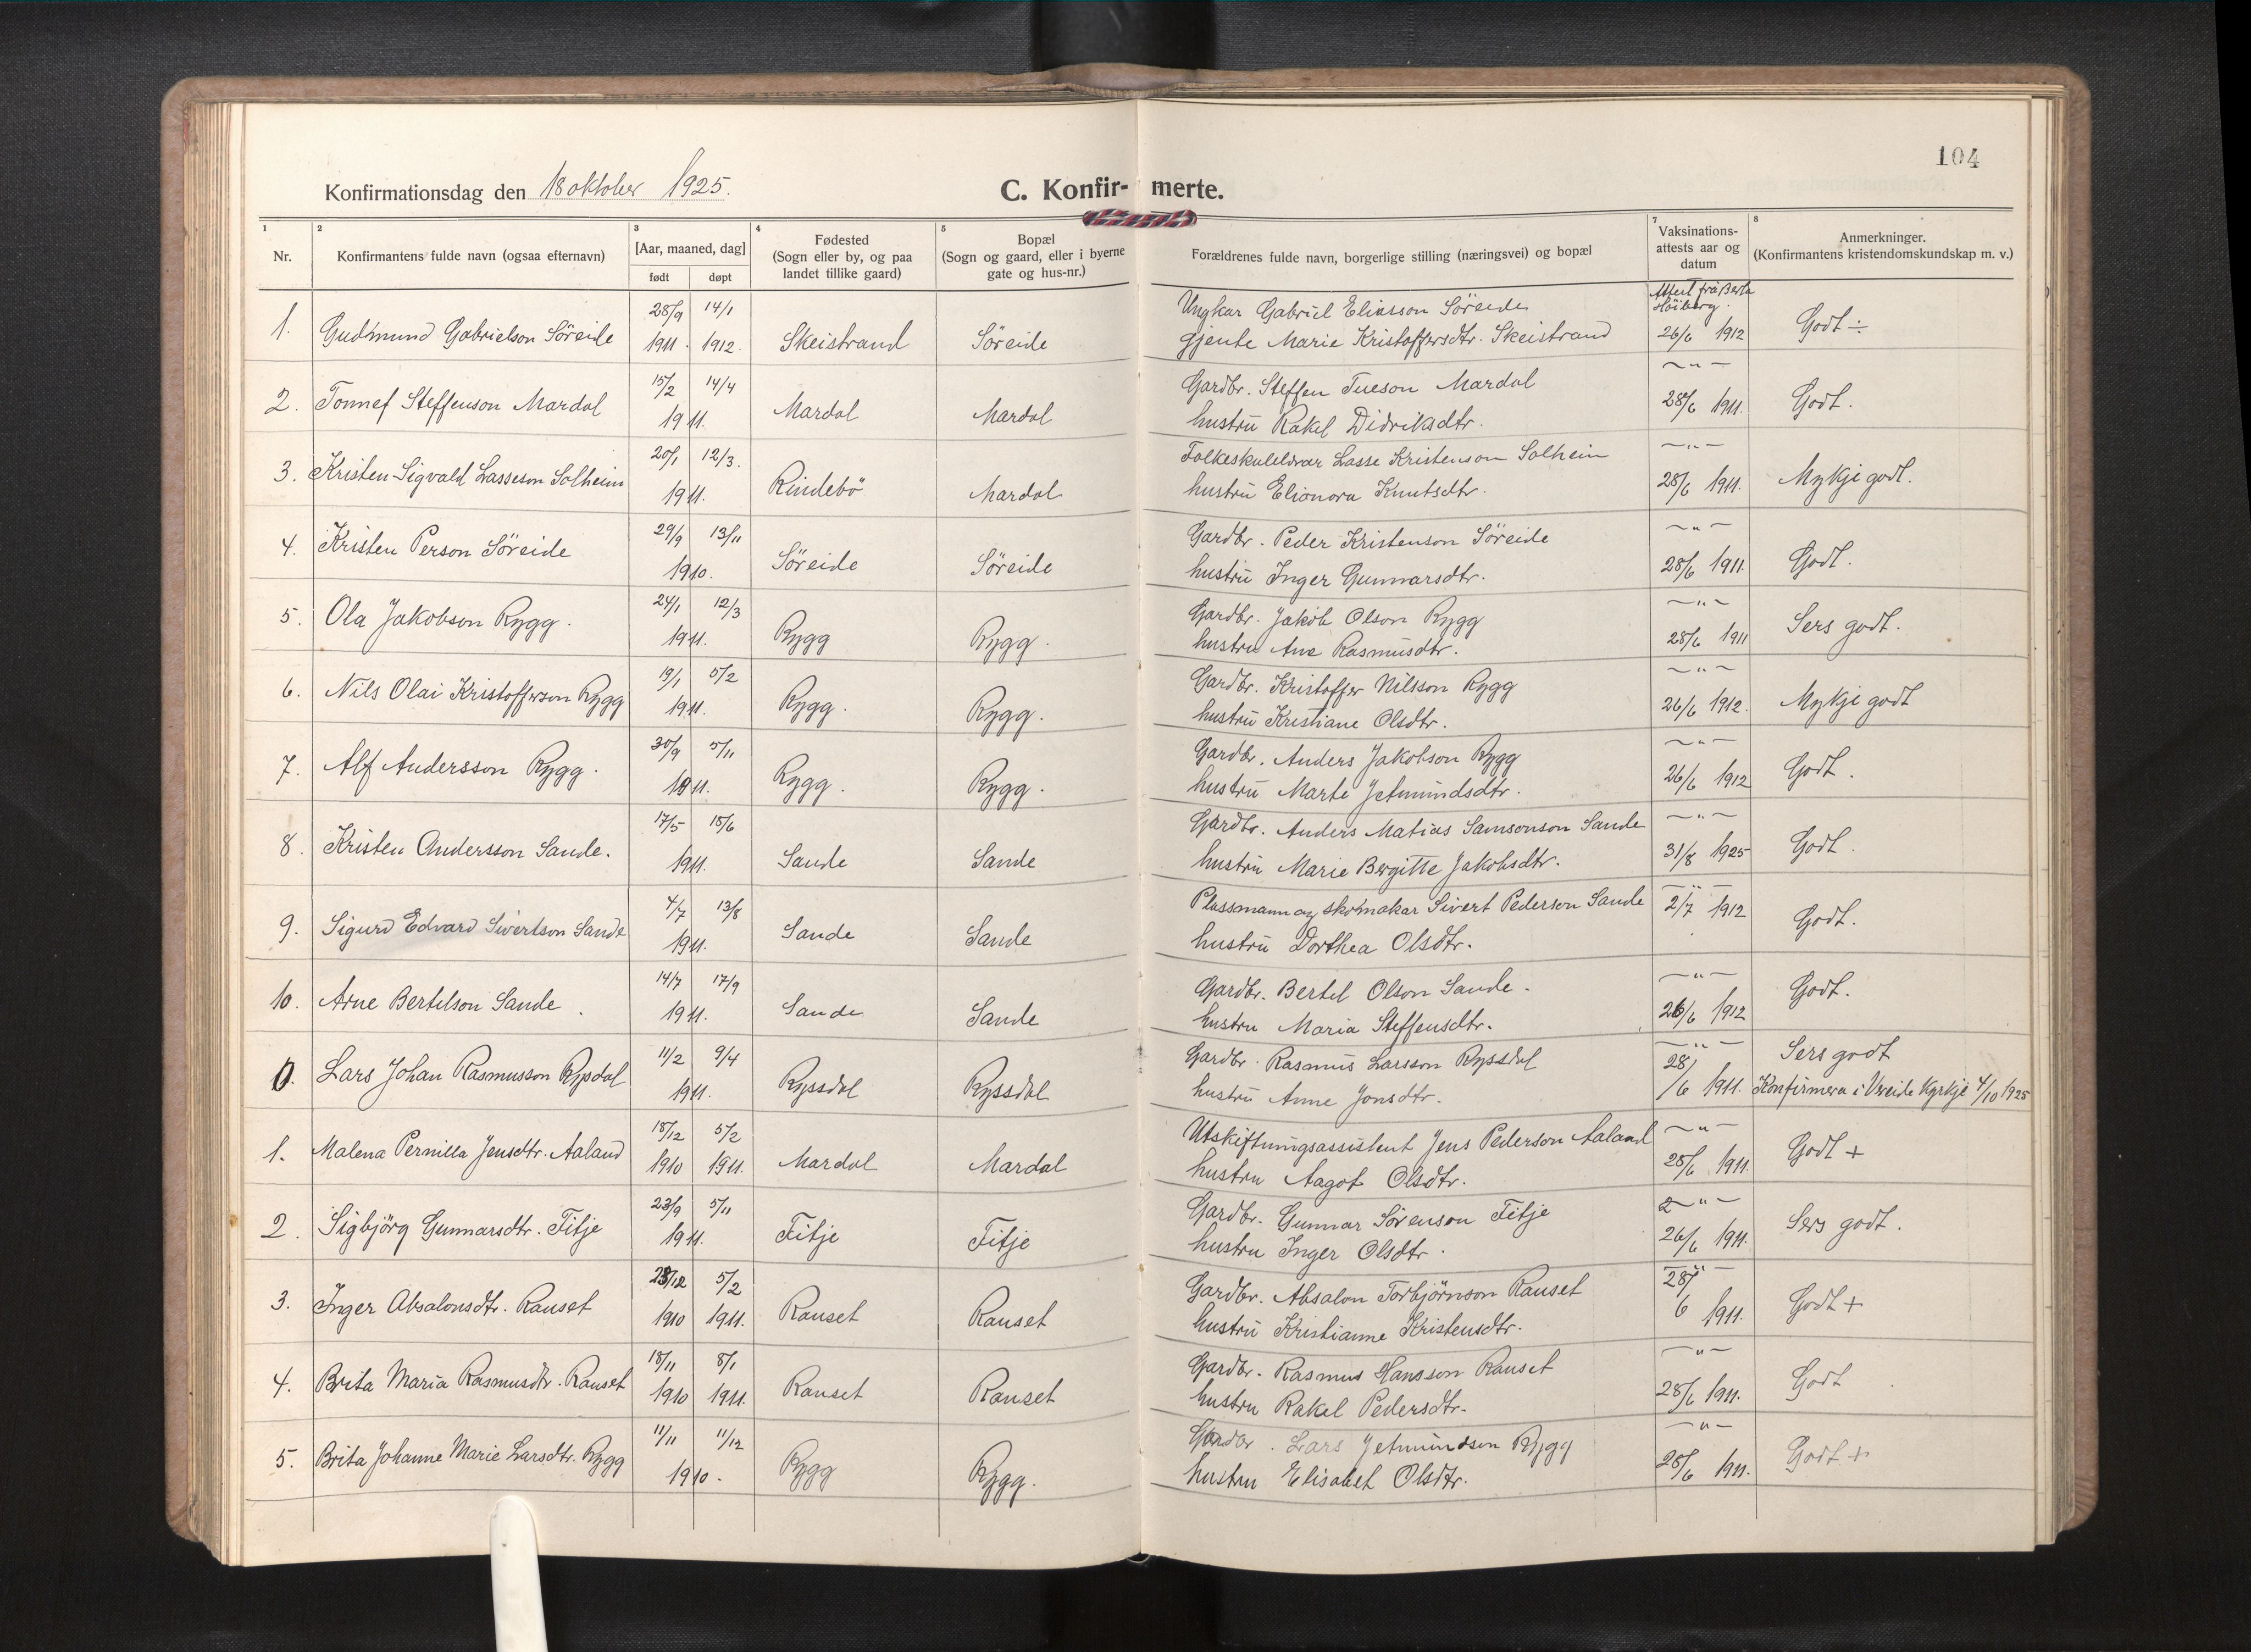 104
Konfirmationsdag den 18 oktober 1925.
C. Konfir- merte.
1 2 3 4 5 7 8
Nr.
Konfirmantens fulde navn (ogsaa efternavn)
[Aar, maaned, dag]
født døpt
Fødested
(Sogn eller by, og paa
landet tillike gaard)
Bopæl
(Sogn og gaard, eller i byerne
gate og hus-nr.)
Forældrenes fulde navn, borgerlige stilling (næringsvei) og bopæl
Vaksinations-
attests aar og
datum
Anmerkninger.
(Konfirmantens kristendomskundskap m. v.)
Attest frå Berta
Höiberg.
28/9 14/1 Ungkar Gabriel Eliasson Söreide
1. Gudmund Gabrielson Söreide 1911. 1912. Skeistrand Söreide gjente Marie Kristoffersdtr. Skeistrand 26/6 1912 Godt ÷
15/2 14/4 Gardbr. Steffen Tueson Mardal ~"~
2. Tonnef Steffenson Mardal 1911. Mardal Mardal hustru Rakel Didriksdtr. 28/6 1911. Godt.
20/1 12/3. Folkeskulelærar Lasse Kristenson Solheim ~"~
3. Kristen Sigvald Lasseson Solheim 1911. Rindebö Mardal hustru Elionora Knutsdtr. 28/6 1911. Mykje godt.
29/9 13/11 Gardbr. Peder Kristenson Söreide ~"~
4. Kristen Person Söreide 1910. Söreide Söreide hustru Inger Gunnarsdtr. 28/6 1911 Godt.
24/1 12/3 Gardbr. Jakob Olson Rygg ~"~
5. Ola Jakobson Rygg. 1911. Rygg Rygg. hustru Ane Rasmusdtr. 28/6 1911 Sers godt.
19/1 5/2 Gardbr. Kristoffer Nilsson Rygg ~"~
6. Nils Olai Kristofferson Rygg 1911. Rygg. Rygg. hustru Kristiane Olsdtr. 26/6 1912. Mykje godt
30/9 5/11 Gardbr. Anders Jakobson Rygg ~"~
7. Alf Andersson Rygg. 1911. Rygg. Rygg. hustru Marte Jetmundsdtr. 26/6 1912 Godt.
17/5 18/6 Gardbr. Anders Matias Samsonson Sande ~"~
8. Kristen Andersson Sande. 1911. Sande Sande hustru Marie Bergitte Jakobsdtr. 31/8 1925 Godt.
4/7 13/8 Plassmann og skomakar Sivert Pederson Sande 2/7 1912
9. Sigurd Edvard Sivertson Sande 1911. Sande Sande hustru Dorthea Olsdtr. Godt.
14/7 17/9 Gardbr. Bertel Olson Sande. ~"~
10. Arne Bertelson Sande 1911. Sande Sande hustru Maria Steffensdtr. 26/6 1912 Godt.
11/2 9/4 Gardbr. Rasmus Larsson Ryssdal ~"~ Sers godt
0. Lars Johan Rasmusson Rysdal 1911. Ryssdal Ryssdal hustru Anne Jonsdtr. 28/6 1911. Konfirmera i Vereide Kyrkje 4/10 1925
18/12 5/2 Utskiftningsassistent Jens Pederson Aaland ~"~
1. Malena Pernilla Jensdtr. Aaland 1910 1911. Mardal Mardal hustru Aagot Olsdtr. 28/6 1911. Godt +
23/9 5/11 Gardbr. Gunnar Sörenson Fitje ~"~
2. Sigbjörg Gunnarsdtr. Fitje 1911. Fitje Fitje hustru Inger Olsdtr. 26/6 1911. Sers godt.
28/12 5/2 Gardbr. Absalon Torbjörnson Ranset ~"~
3. Inger Absalonsdtr. Ranset 1910 1911. Ranset Ranset hustru Kristianne Kristensdtr. 28/6 1911. Godt +
18/11 8/1 Gardbr. Rasmus Hansson Ranset ~"~
4. Brita Maria Rasmusdtr. Ranset 1910 1911. Ranset Ranset hustru Rakel Pedersdtr. 28/6 1911. Godt
11/11 11/12 Gardbr. Lars Jetmundson Rygg ~"~
5. Brita Johanne Marie Larsdtr. Rygg 1910. Rygg Rygg. hustru Elisabet Olsdtr. 28/6 1911. Godt +